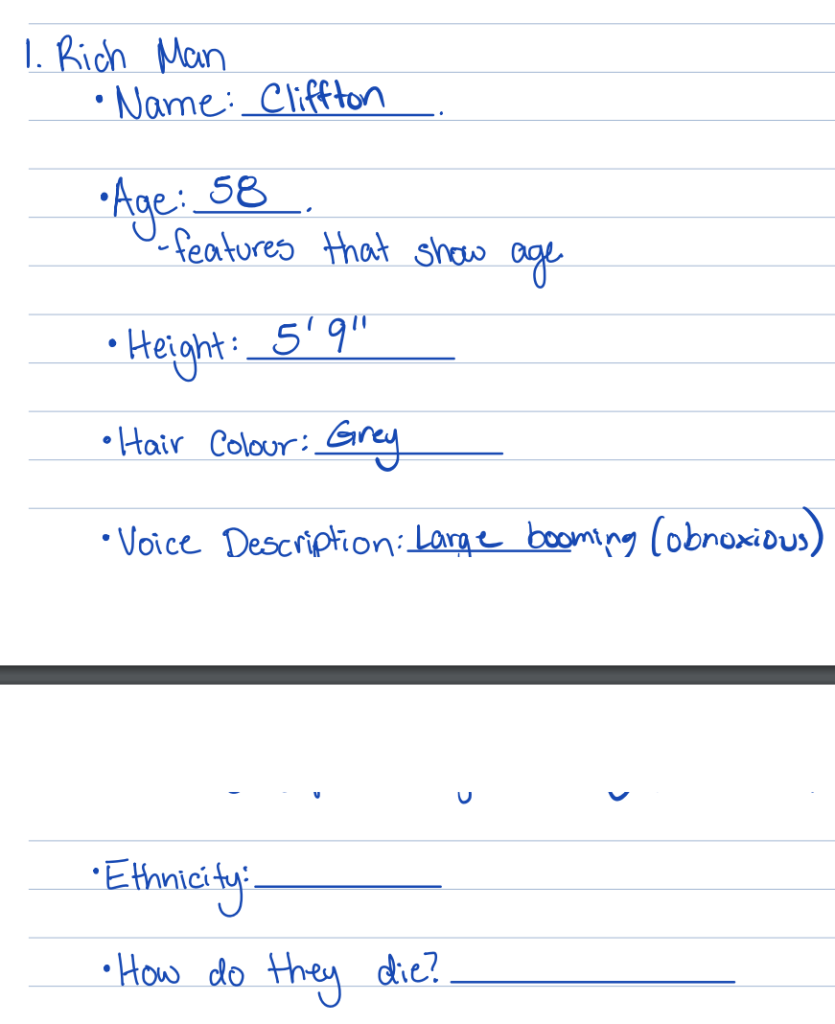 1. Rich Man
• Name: Cliffton.
• Age: 58.
- features that show age
• Height: 5' 9"
• Hair Colour: Grey
• Voice Description: Large booming (obnoxious)
• Ethnicity:
• How do they die?